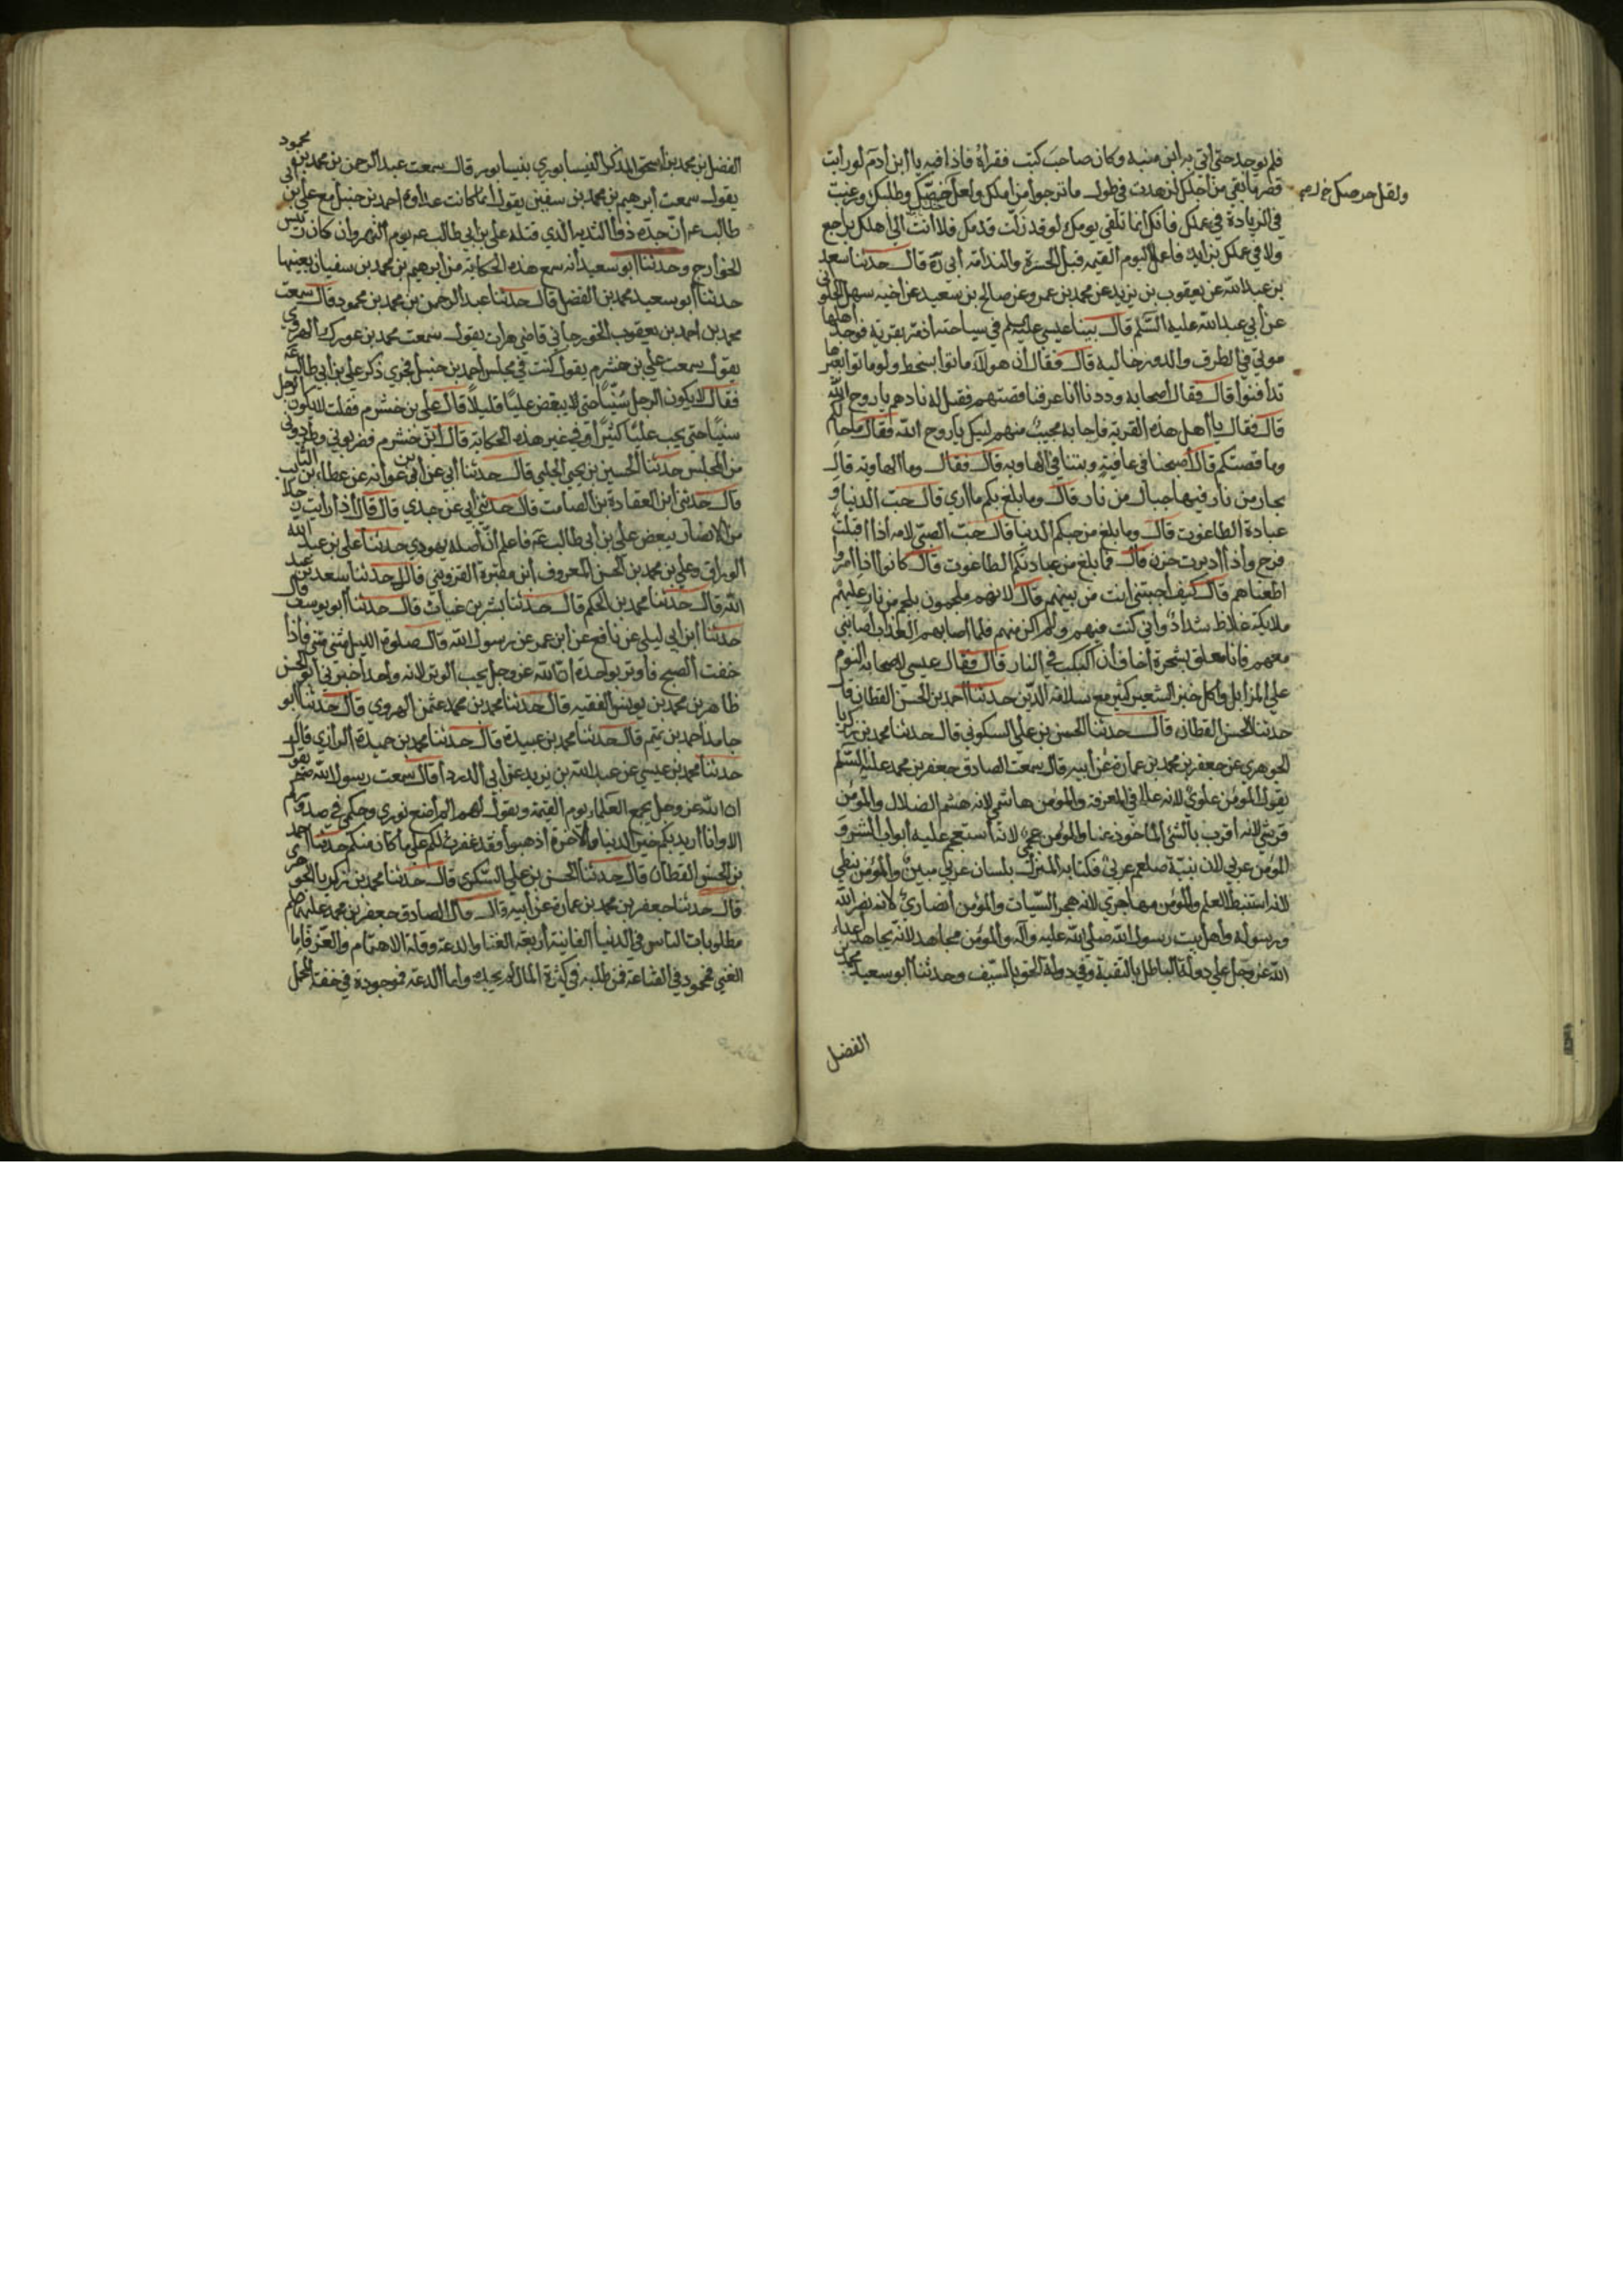 فلم يوجد حتى اتي به ابن منبه وكان صاحب كتب فقرأه فاذا فيه يا ابن ادم لو رايت
قصر ما بقي من اجلك لزهدت في طول ما ترجوا من املك ولعل حرصك وطلبك ورغبت
ولقل حرصك خ ل
في الزيادة في عملك فانك انما تلقي يومك لو قد زلت قدمك فلا انت الى اهلك براجع
ولا في عملك بزايد فاعمل اليوم القيمة قبل الحسرة والندامة أبي ره قال حدثنا سعد
بن عبد الله عن يعقوب بن يزيد عن محمد بن عمرو عن صالح بن سعيد عن اخيه سهل الحلواني
عن أبي عبد الله عليه السلم قال بينا عيسى عليه السلم في سياحته اذ مر بقرية فوجد اهلها
موتي في الطرق والدور خالية قال فقال ان هولآء ماتوا بسخط ولو ماتوا بغيرها
تدافنوا قال فقال اصحابه وددنا انا عرفنا قصتهم فقيل له نادهم يا روح الله
قال فقال يا أهل هذه القرية فاجابه مجيب منهم لبيك يا روح الله فقال ما حالكم
وما قصتكم قال اصبحنا في عافية وبتنا في الهاوية قال فقال وما الهاوية قال
بحار من نار فيها جبال من نار قال وما بلغ بكم ما اري قال حب الدنيا و
عبادة الطاغوت قال وما بلغ من حبكم الدنيا قال حب الصبي لامه اذا اقبلت
فرح واذا ادبرت حزن قال فما بلغ من عبادتكم الطاغوت قال كانوا اذا امروا
اطعناهم قال كيف اجبتني انت من بينهم قال لانهم ملجمون بلجم من نار عليهم
ملايكة غلاظ شداد واني كنت فيهم ولم اكن منهم فلما اصابهم العذاب اصابني
معهم فانا معلق بشجرة اخاف ان اكبكب في النار قال فقال عيسى لاصحابه النوم
على المزابل واكل خبز الشعير كثير مع سلامة الدين حدثنا احمد بن الحسن القطان قال
حدثنا الحسن القطان قال حدثنا الحسن بن علي السكوني قال حدثنا محمد بن زكريا
الجوهري عن جعفر بن محمد بن عمارة عن أبيه قال سمعت الصادق جعفر بن محمد عليه السلم
يقول المؤمن علوي لانه علا في المعرفة والمؤمن هاشمي لانه هشم الضلال والمؤمن
قرشي لانه اقرب بالشئ الماخوذ عنا والمؤمن عجمي لانه استعجم عليه أبواب الشر و
المؤمن عربي لان نبيه صلعم عربي فكتابه المنزل بلسان عربي مبين والمؤمن نبطي
لانه استنبط العلم والمؤمن مهاجري لانه هجر السيات والمؤمن انصاري لانه نصر الله
ورسوله وأهل بيت رسول الله صلى الله عليه وآله والمؤمن مجاهد لانه يجاهد اعداء
الله عز وجل على دولة الباطل بالتقية وفي دولة الحق بالسيف وحدثنا ابو سعيد محمد بن
الفضل
الفضل بن محمد بن اسحق المذكر النيسابوري بنيسابور قال سمعت عبد الرحمن بن محمد بن محمود
يقول سمعت أبرهيم بن محمد بن سفين يقول انما كانت عداوة احمد بن حنبل مع علي بن أبي
طالب عم ان جده ذو الثدية الذي قتله علي بن أبي طالب عم يوم النهروان كان رئيس
الخوارج وحدثنا ابو سعيد انه سمع هذه الحكاية من أبرهيم بن محمد بن سفيان بعينها
حدثنا ابو سعيد محمد بن الفضل قال حدثنا عبد الرحمن بن محمد بن محمود قال سمعت
محمد بن احمد بن يعقوب الجورجاني قاضي هرات يقول سمعت محمد بن عورك الهروي
يقول سمعت علي بن خشرم يقول كنت في مجلس احمد بن حنبل فجري ذكر علي بن ابي طالب عم
فقال لا يكون الرجل سنيا حتى لا يبغض عليا قليلا قال علي بن خشرم فقلت لا يكون الرجل
سنيا حتى يحب عليا كثيرا وفي غير هذه الحكاية قال ابن خشرم فضربوني وطردوني
من المجلس حدثنا الحسين بن يحيى البجلي قال حدثنا ابي عن ابن عوانه عن عطاء بن السايب
قال حدثني ابن العقادة بن الصامت قال حدثني أبي عن جدي قال قال اذا رايت رجلا
من الانصار يبغض علي بن أبي طالب عم فاعلم ان اصله يهودي حدثنا علي بن عبد الله
الوراق وعلي بن محمد بن الحسن المعروف بابن مقبرة القزويني قال حدثنا سعد بن عبد
الله قال حدثنا محمد بن الحكم قال حدثنا بشر بن غياث قال حدثنا ابو يوسف قال
حدثنا ابن ابي ليلى عن نافع عن ابن عمر عن رسول الله قال صلوة الليل مثني مثني فاذا
خفت الصبح فاوتر بواحدة ان الله عز وجل يحب الوتر لانه واحد اخبرني ابو الحسن
ظاهر بن محمد بن يونس الفقيه قال حدثنا محمد بن محمد عثمن الهروي قال حدثنا ابو
حامد احمد بن تميم قال حدثنا محمد بن عبيدة قال حدثنا محمد بن حميدة الرازي قال
حدثنا محمد بن عيسى عن عبد الله بن يزيد عن أبي الدرداء قال سمعت رسول الله صلعم يقول
ان الله عز وجل يجمع العلماء يوم القيمة ويقول لهم لم اضع نوري وحكمي في صدوركم
الا وانا اريد بكم خير الدنيا والآخرة اذهبوا فقد غفرت لكم على ما كان منكم حدثنا احمد
بن الحسن القطان قال حدثنا الحسن بن علي السكري قال حدثنا محمد بن زكريا الجوهري
قال حدثنا جعفر بن محمد بن عمارة عن أبيه قال قال الصادق جعفر بن محمد عليهما السلم
مطلوبات الناس في الدنيا الفانية اربعة الغنا والدعة وقلة الاهتمام والعز فاما
الغني فموجود في القناعة فمن طلبه في كثرة المال لم يجده واما الدعة فموجودة في خفة المحمل